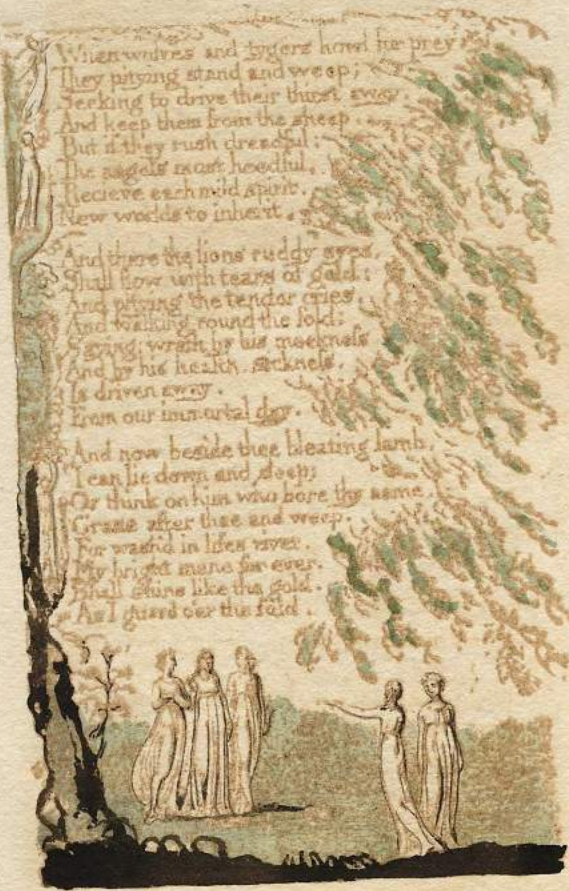 When wolves and tygers howl for prey
They pitying stand and weep;
Seeking to drive their thirst away,
And keep them from the sheep.
But if they rush dreadful;
The angels most heedful,
Recieve each mild spirit,
New worlds to inherit.

And there the lions ruddy eyes,
Shall flow with tears of gold:
And pitying the tender cries,
And walking round the fold:
Saying: wrath by his meekness
And by his health, sickness,
Is driven away,
From our immortal day.

And now beside thee bleating lamb,
I can lie down and sleep;
Or think on him who bore thy name,
Graze after thee and weep.
For wash'd in lifes river,
My bright mane for ever,
Shall shine like the gold,
As I guard o'er the fold.